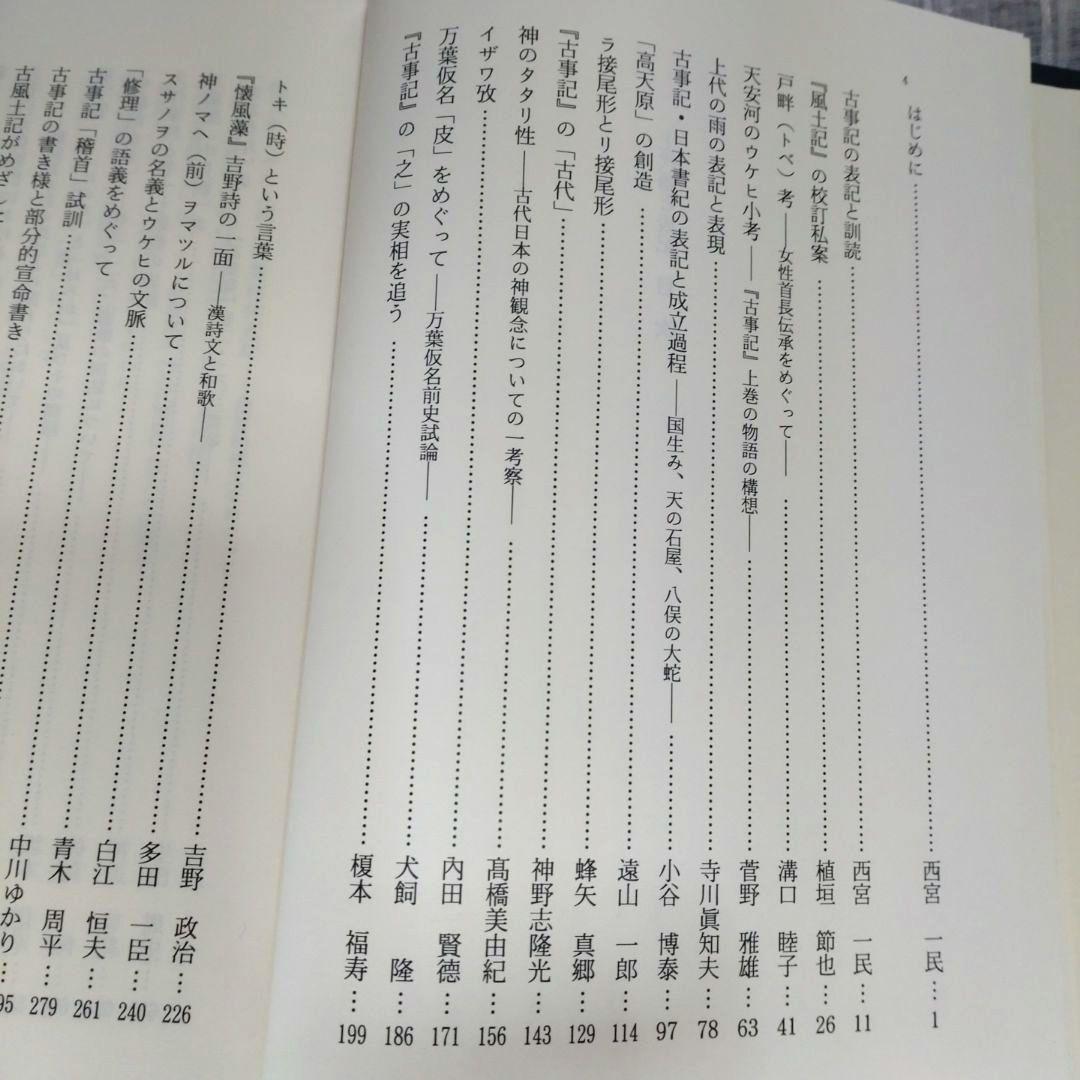 はじめに……西宮 一民…1
古事記の表記と訓読……西宮 一民…11
『風土記』の校訂私案……植垣 節也…26
戸畔（トベ）考――女性首長伝承をめぐって――……溝口 睦子…41
天安河のウケヒ小考――『古事記』上巻の物語の構想――……菅野 雅雄…63
上代の雨の表記と表現……寺川眞知夫…78
古事記・日本書紀の表記と成立過程――国生み、天の石屋、八俣の大蛇――……小谷 博泰…97
「高天原」の創造……遠山 一郎…114
ラ接尾形とリ接尾形……蜂矢 真郷…129
『古事記』の「古代」……神野志隆光…143
神のタタリ性――古代日本の神観念についての一考察――……髙橋美由紀…156
イザワ攷……內田 賢德…171
万葉仮名「皮」をめぐって――万葉仮名前史試論――……犬飼 隆…186
『古事記』の「之」の実相を追う……榎本 福寿…199
トキ（時）という言葉……吉野 政治…226
『懐風藻』吉野詩の一面――漢詩文と和歌――……多田 一臣…240
神ノマヘ（前）ヲマツルについて……白江 恒夫…261
スサノヲの名義とウケヒの文脈……青木 周平…279
「修理」の語義をめぐって……中川ゆかり…95
古事記「稽首」試訓……
古事記の書き様と部分的宣命書き……
古風土記がめざした